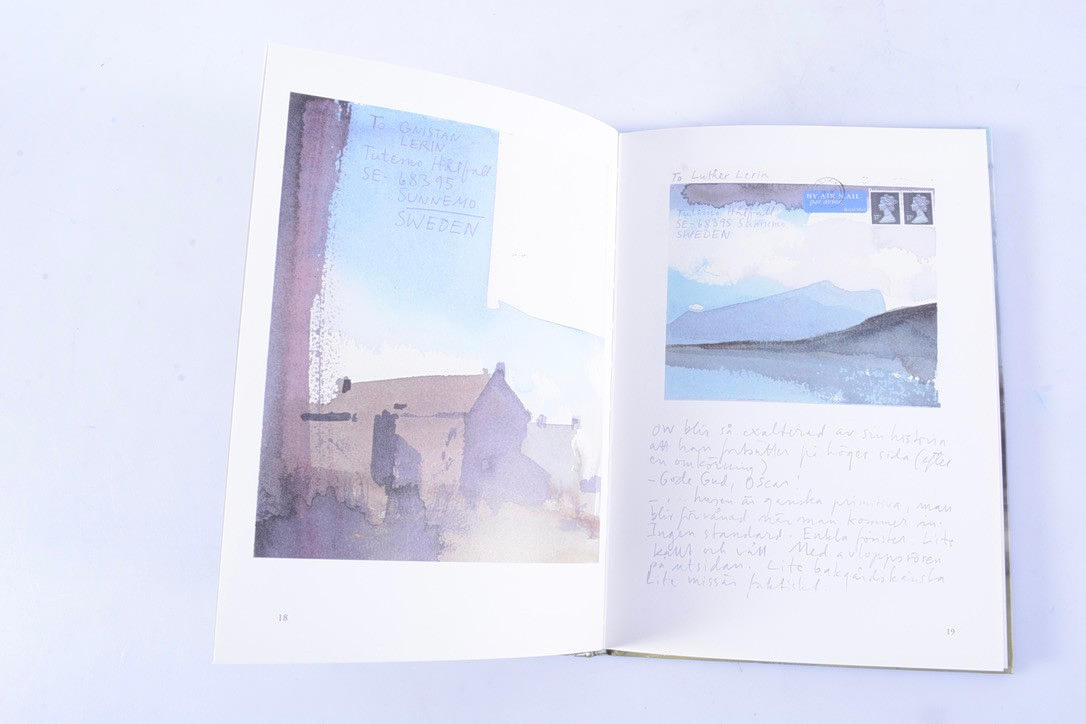 To GNISTAN
LERIN
Tutemo Hållfall
SE-68395
SUNNEMO
SWEDEN
18
To Luther Lerin
BY AIR MAIL
par avion
SE-68395 Sunnemo
SWEDEN
OW blir så exalterad av sin historia
att han fortsätter på höger sida (efter
en omkörning)
- Gode Gud, Oscar!
husen är ganska primitiva, man
blir förvånad när man kommer in.
Ingen standard. Enkla fönster. Lite
kallt och rått. Med avloppsrören
på utsidan. Lite bakgårdskänsla
Lite missär faktiskt.
19